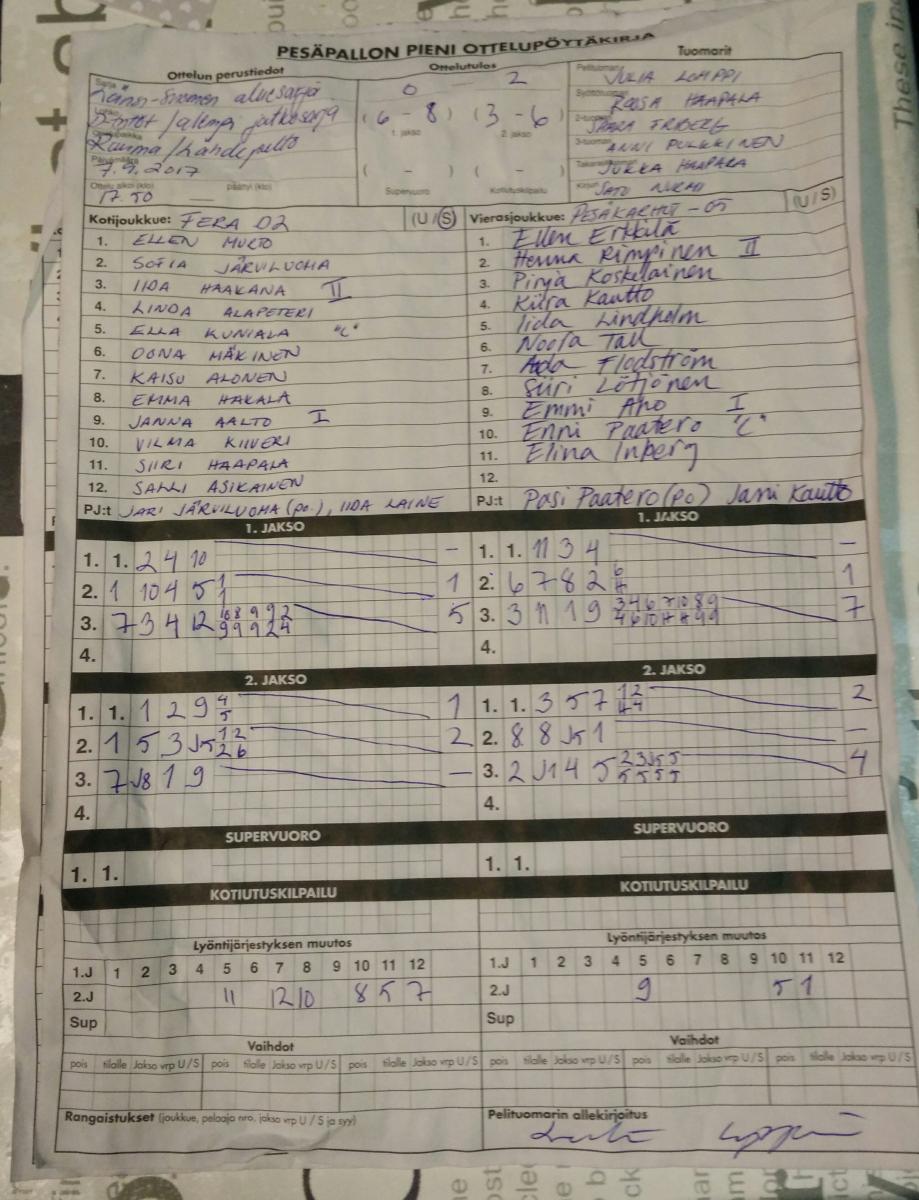 PESÄPALLON PIENI OTTELUPÖYTÄKIRJA
Ottelun perustiedot
Ottelutulos
Tuomarit
Sarja
Länsi-Suomen aluesarja
D-tytöt / alempi jatkosarja
Rauma / Lähdepelto
Päivämäärä
7.9.2017
Ottelu alkoi (klo) päättyi (klo)
17.50
0 2
(6 - 8) (3 - 6)
1. jakso 2. jakso
( - ) ( - )
Supervuoro Kotiutuskilpailu
Pelituomari
JULIA LUMPPI
Syöttötuomari
ROOSA HAAPALA
2-tuomari
SAARA FRIBERG
3-tuomari
ANNI PULKKINEN
Takarajatuomari
JUKKA HAAPARA
Kirjuri
SATU NURMI
Kotijoukkue: FERA D2 (U/S)
1. ELLEN MURTO
2. SOFIA JÄRVILUOMA
3. IIDA HAAKANA II
4. LINDA ALAPETERI
5. ELLA KUNIALA "C"
6. OONA MÄKINEN
7. KAISU ALONEN
8. EMMA HAKALA
9. JANNA AALTO I
10. VILMA KIIVERI
11. SIIRI HAAPALA
12. SALLI ASIKAINEN
PJ:t JARI JÄRVILUOMA (po.), IIDA LAINE
Vierasjoukkue: PESÄKARHUT -05 (U/S)
1. Ellen Erkkilä
2. Henna Rimpinen II
3. Pinja Koskelainen
4. Kiira Kautto
5. Iida Lindholm
6. Noora Tall
7. Ada Flodström
8. Siiri Lötjönen
9. Emmi Aho I
10. Enni Paatero "C"
11. Elina Inberg
12.
PJ:t Pasi Paatero (po) Jani Kautto
1. JAKSO
1. 1. 2 4 10 –
2. 1 10 4 5 1 1 1
3. 7 3 4 12 5
4.
1. JAKSO
1. 1. 11 3 4 –
2. 6 7 8 2 1
3. 3 11 1 9 7
4.
2. JAKSO
1. 1. 1 2 9 4 5 1
2. 1 5 3 2
3. 7 J8 1 9 –
4.
2. JAKSO
1. 1. 3 5 7 2
2. 8 8 J5 1 –
3. 2 J1 4 5 4
4.
SUPERVUORO
1. 1.
SUPERVUORO
1. 1.
KOTIUTUSKILPAILU
KOTIUTUSKILPAILU
Lyöntijärjestyksen muutos
1.J 1 2 3 4 5 6 7 8 9 10 11 12
2.J 11 12 10 8 5 7
Sup
Lyöntijärjestyksen muutos
1.J 1 2 3 4 5 6 7 8 9 10 11 12
2.J 9 5 1
Sup
Vaihdot
pois tilalle Jakso vrp U / S pois tilalle Jakso vrp U / S pois tilalle Jakso vrp U / S
Vaihdot
pois tilalle Jakso vrp U / S pois tilalle Jakso vrp U / S pois tilalle Jakso vrp U / S
Rangaistukset (joukkue, pelaaja nro, jakso vrp U / S ja syy)
Pelituomarin allekirjoitus